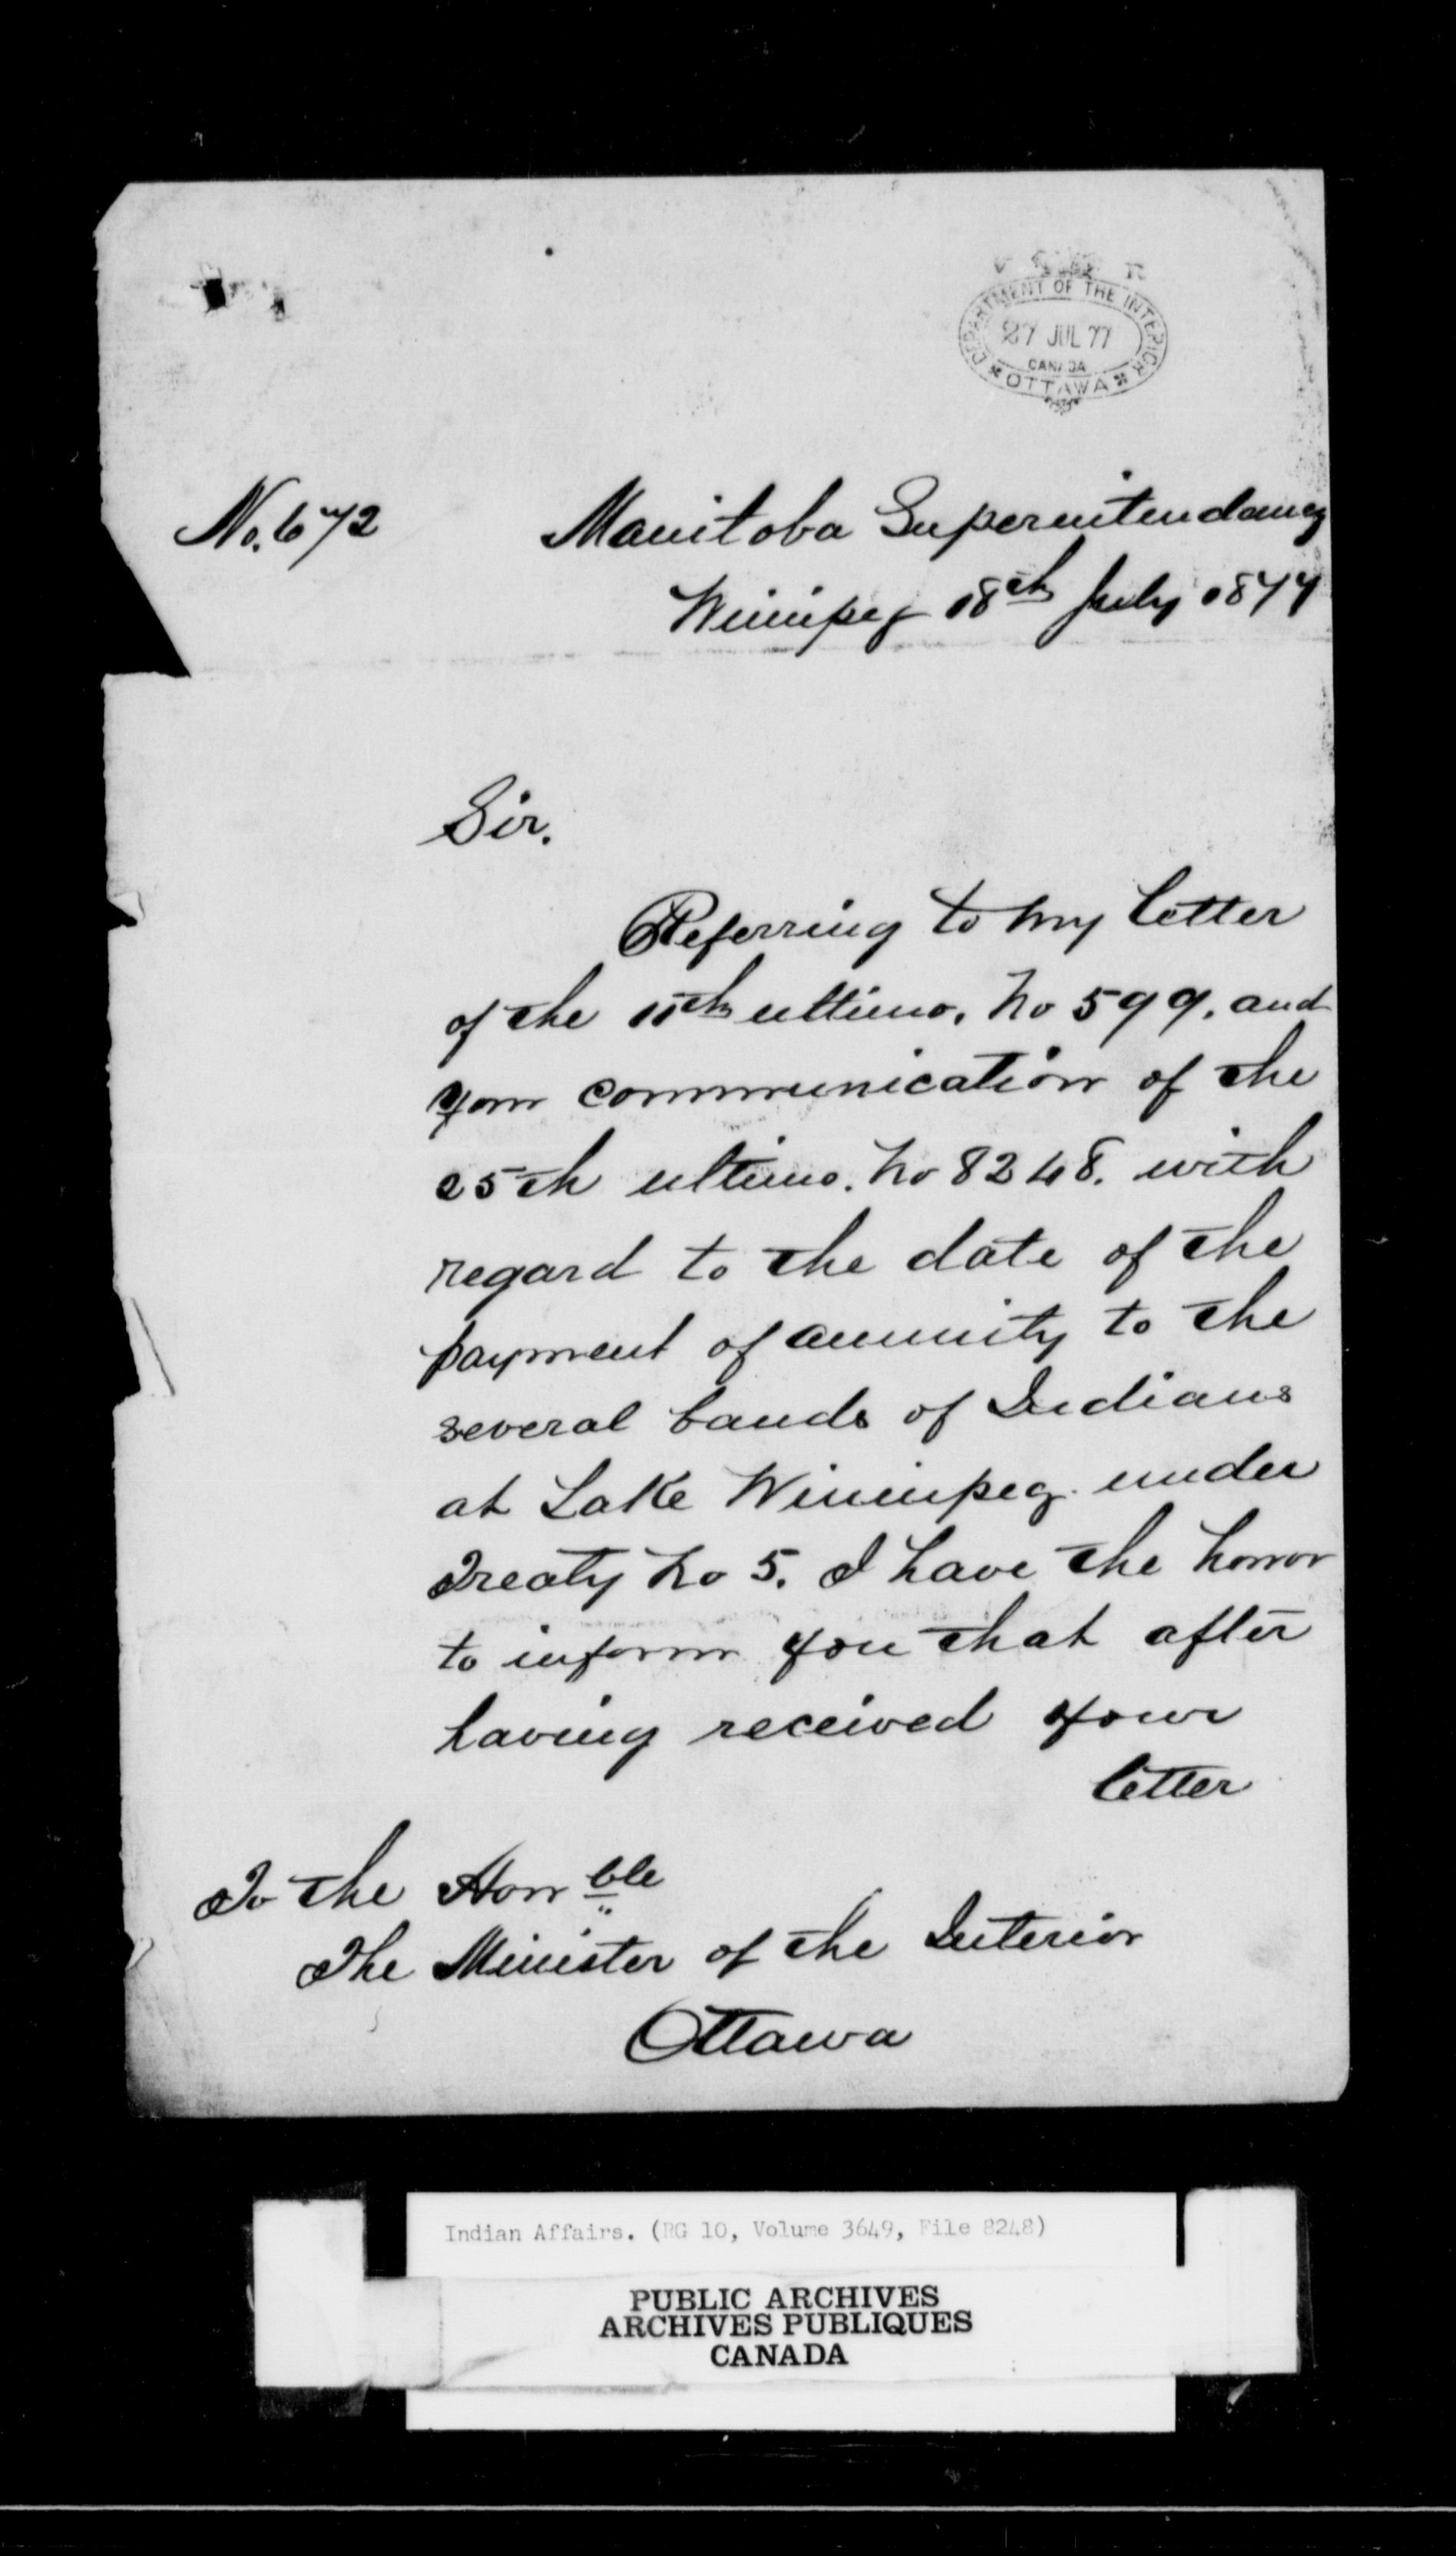 V R
DEPARTMENT OF THE INTERIOR
27 JUL 77
CANADA
OTTAWA
No. 672
Manitoba Superintendancy
Winnipeg 18th July 1877
Sir.
Referring to my letter
of the 11th ultimo. No 599. and
your communication of the
25th ultimo. No 8248. with
regard to the date of the
payment of annuity to the
several bands of Indians
at Lake Winnipeg under
Treaty No 5. I have the honor
to inform you that after
having received your
letter
To the Honble
The Minister of the Interior
Ottawa
Indian Affairs. (RG 10, Volume 3649, File 8248)
PUBLIC ARCHIVES
ARCHIVES PUBLIQUES
CANADA